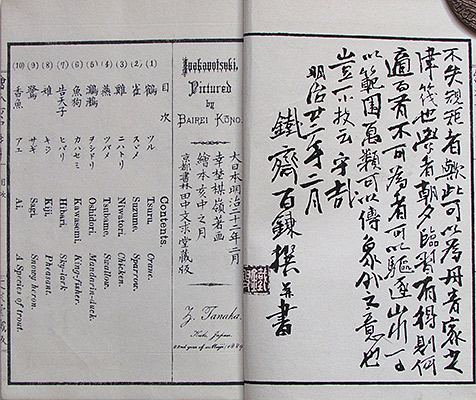 不失規矩者歟此可以為丹青家之
津筏也學者朝夕臨習有得則何
適而有不可為者可以驅逐山川可
以範圍萬類可以傳象外之意也
明治廿二年二月
鐵齋百鍊撰并書
Inakanotsuki,
Pictured
by
BAIREI KŌNO.
大日本明治二十二年二月
幸埜楳嶺著画
繪本亥中之月
京都書林田中文求堂藏版
Z. Tanaka.
Japan.
Contents.
目次
(1) 鶴 ツル Tsuru, Crane.
(2) 雀 スヾメ Suzume, Sparrow.
(3) 雞 ニハトリ Niwatori, Chicken.
(4) 燕 ツバメ Tsubame, Swallow.
(5) 鸂鶒 ヲシドリ Oshidori, Mandarin-duck.
(6) 魚狗 カハセミ Kawasemi, King-fisher.
(7) 告天子 ヒバリ Hibari, Sky-lark
(8) 雉 キジ Kiji, Pheasant.
(9) 鷺 サギ Sagi, Snowy heron.
(10) 香魚 アユ Ai, A Species of trout.